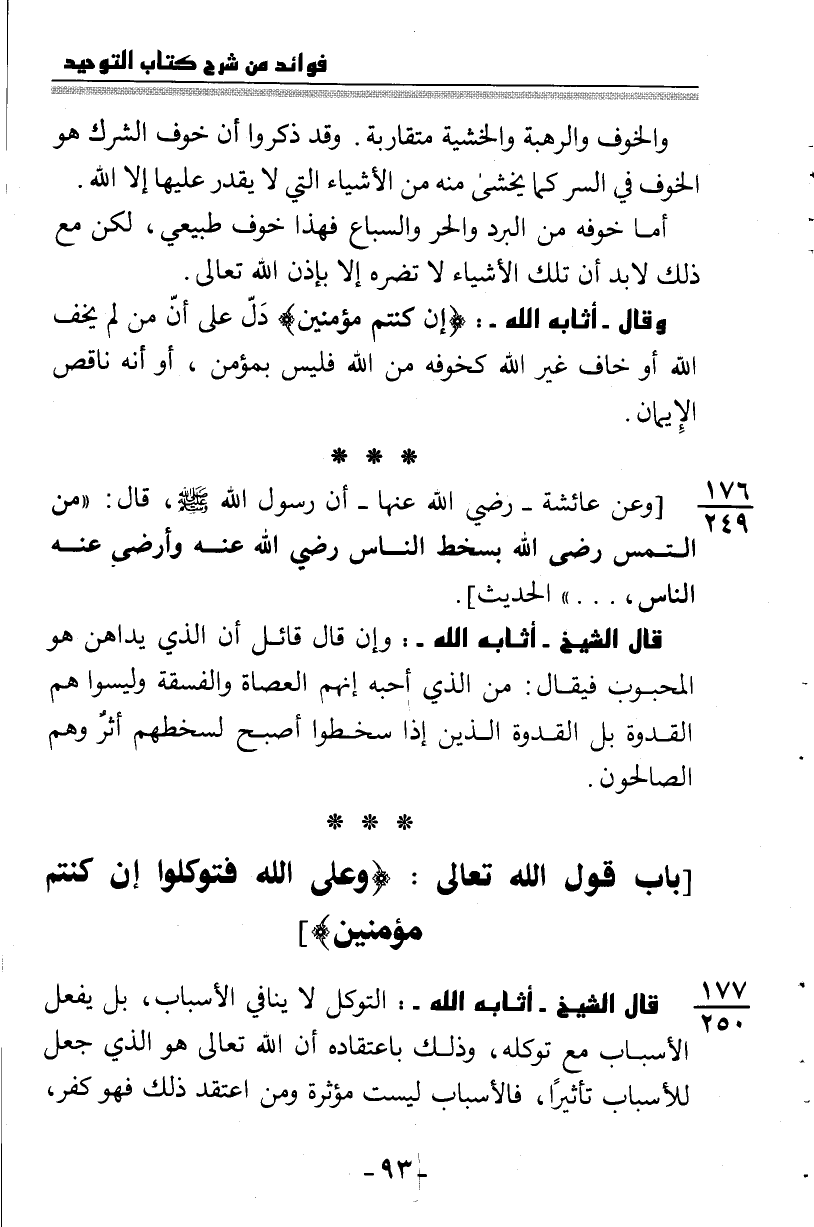 فوائد من شرح كتاب التوحيد
والخوف والرهبة والخشية متقاربة. وقد ذكروا أن خوف الشرك هو
الخوف في السر كما يخشىٰ منه من الأشياء التي لا يقدر عليها إلا الله.
أما خوفه من البرد والحر والسباع فهذا خوف طبيعي، لكن مع
ذلك لابد أن تلك الأشياء لا تضره إلا بإذن الله تعالى.
وقال ـ أثابه الله ـ: ﴿إن كنتم مؤمنين﴾ دَلّ على أنّ من لم يخف
الله أو خاف غير الله كخوفه من الله فليس بمؤمن ، أو أنه ناقص
الإِيمان.
* * *
١٧٦
٢٤٩
[وعن عائشة ـ رضي الله عنها ـ أن رسول الله ﷺ، قال: «من
التمس رضى الله بسخط الناس رضي الله عنه وأرضى عنه
الناس، . . .» الحديث].
قال الشيخ ـ أثابه الله ـ: وإن قال قائل أن الذي يداهن هو
المحبوب فيقال: من الذي أحبه إنهم العصاة والفسقة وليسوا هم
القدوة بل القدوة الذين إذا سخطوا أصبح لسخطهم أثرٌ وهم
الصالحون.
* * *
[باب قول الله تعالى : ﴿وعلى الله فتوكلوا إن كنتم
مؤمنين﴾]
١٧٧
٢٥٠
قال الشيخ ـ أثابه الله ـ: التوكل لا ينافي الأسباب، بل يفعل
الأسباب مع توكله، وذلك باعتقاده أن الله تعالى هو الذي جعل
للأسباب تأثيرًا، فالأسباب ليست مؤثرة ومن اعتقد ذلك فهو كفر،
-٩٣-